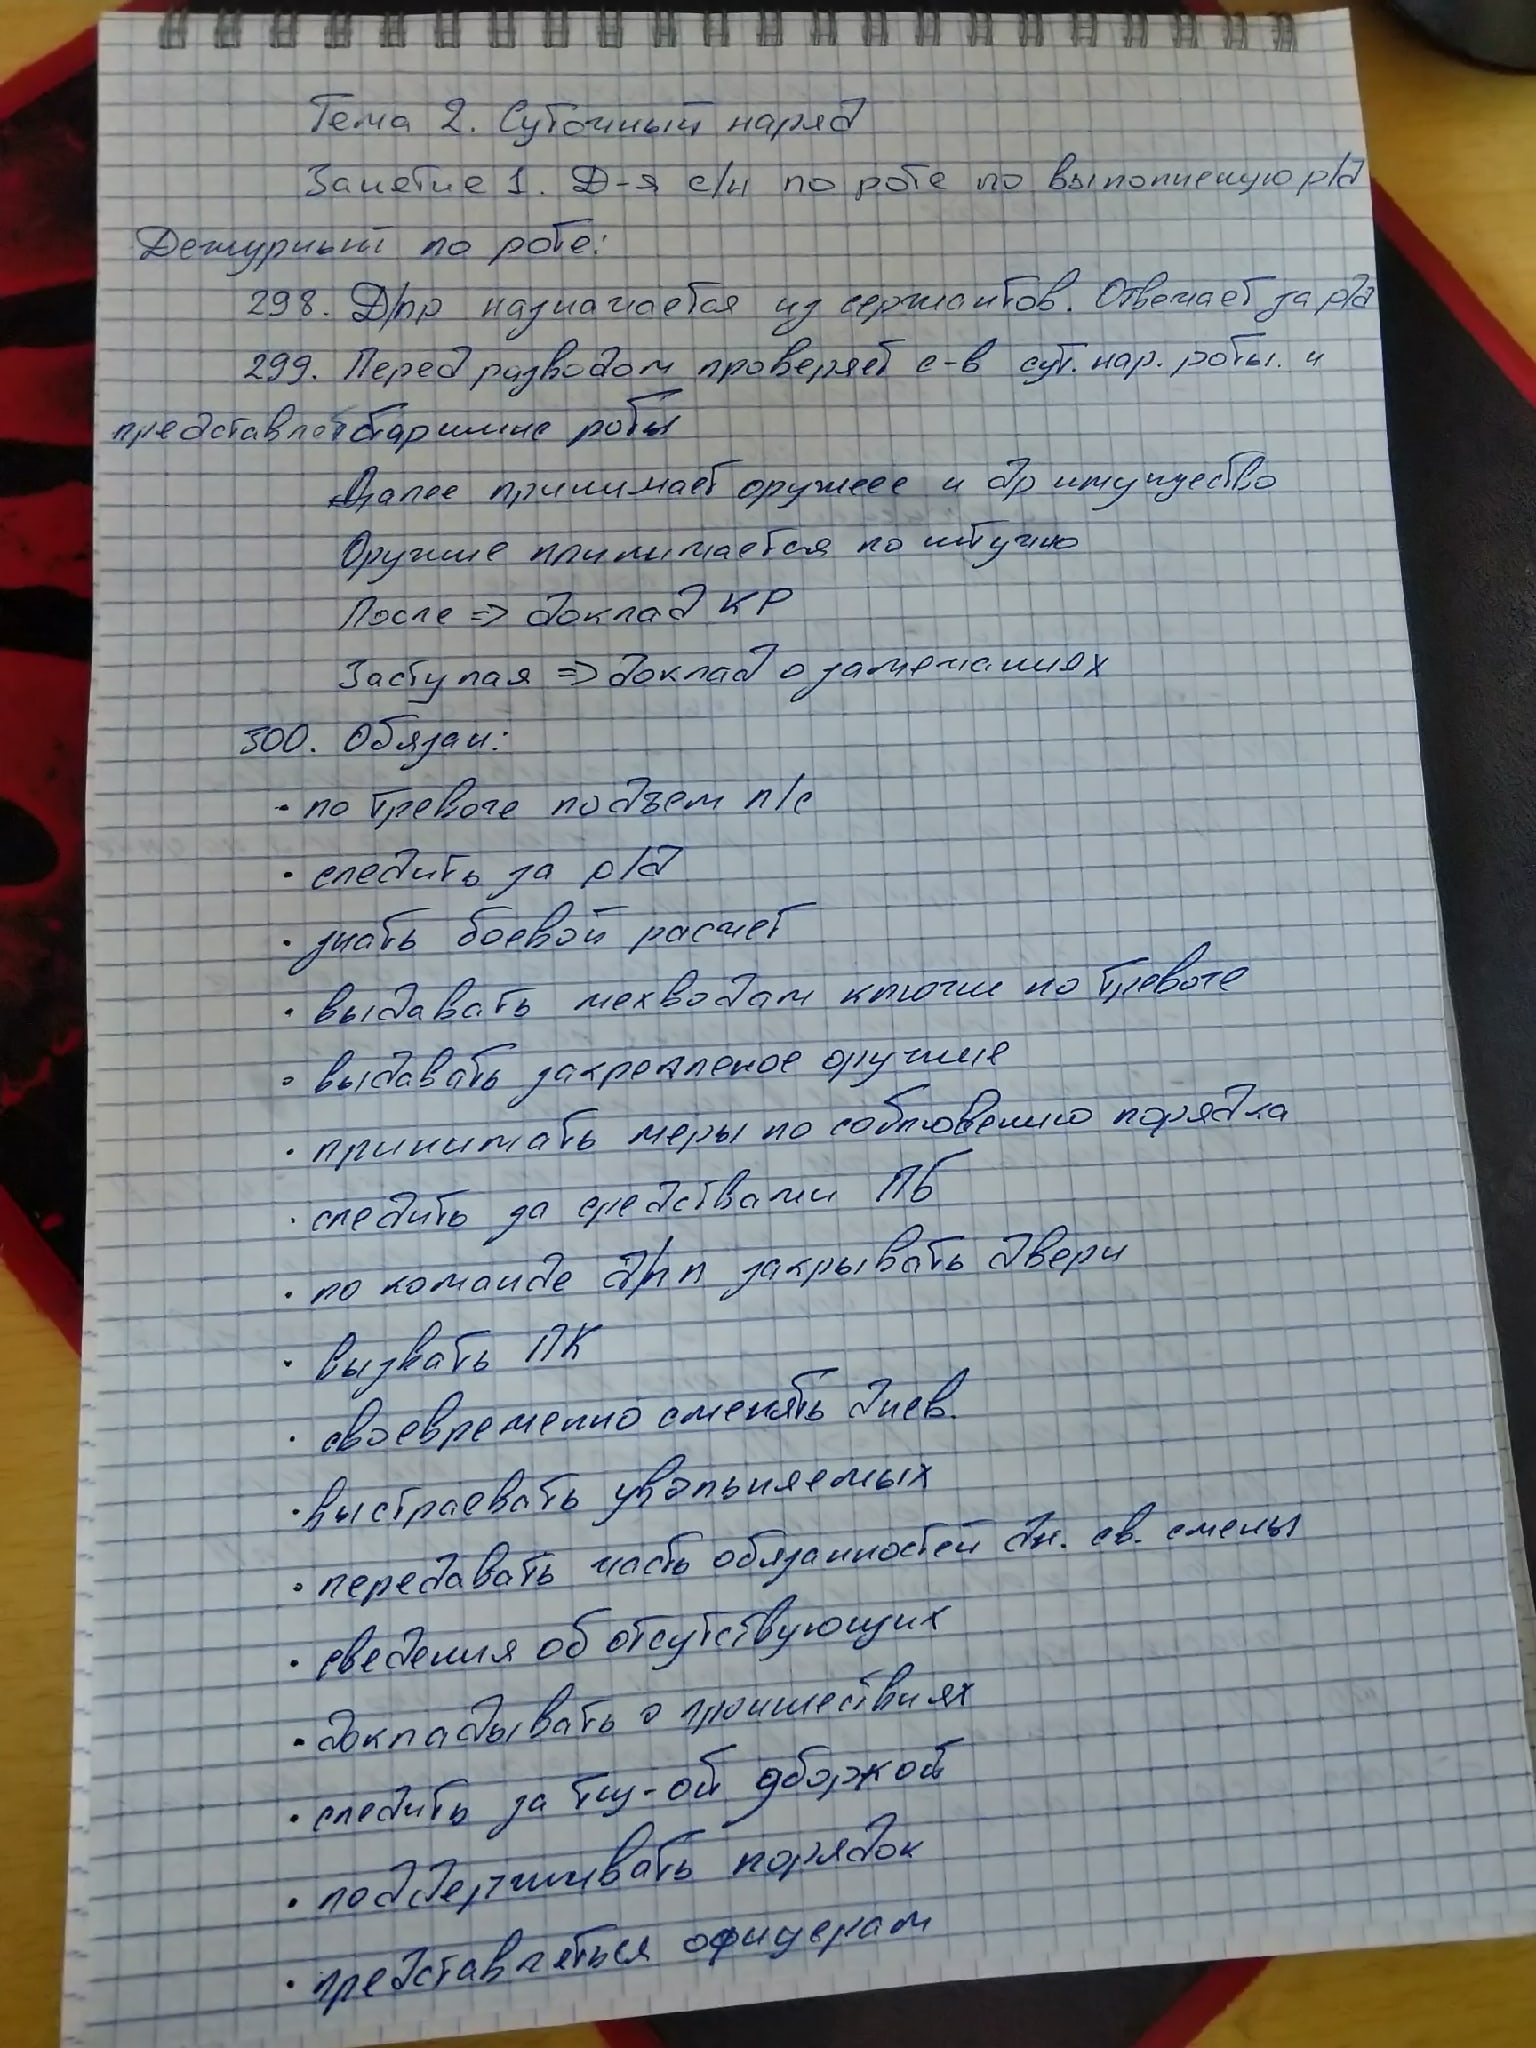 Тема 2. Суточный наряд
Занятие 1. Д-я с/н по роте по выполнению р/д
Дежурный по роте:
298. Д/пр назначается из сержантов. Отвечает за р/д
299. Перед разводом проверяет с-в сут. нар. роты. и
представлет старшине роты
Далее принимает оружеее и др имущество
Оружие принимается по штучно
После => доклад КР
Заступая => доклад о замечаниях
300. Обязан:
• по тревоге подъем л/с
• следить за р/д
• знать боевой расчет
• выдавать мехводам ключи по тревоге
• выдавать закрепленое оружие
• принимать меры по соблювению порядка
• следить за средствами ПБ
• по команде д/пп закрывать двери
• вызвать ПК
• своевременно сменять днев.
• выстраевать увольняемых
• передавать часть обязанностей дн. св. смены
• сведения об отсутствующих
• докладывать о проишествиях
• следить за тщ-ой уборкой
• поддерживать порядок
• представляться офицерам